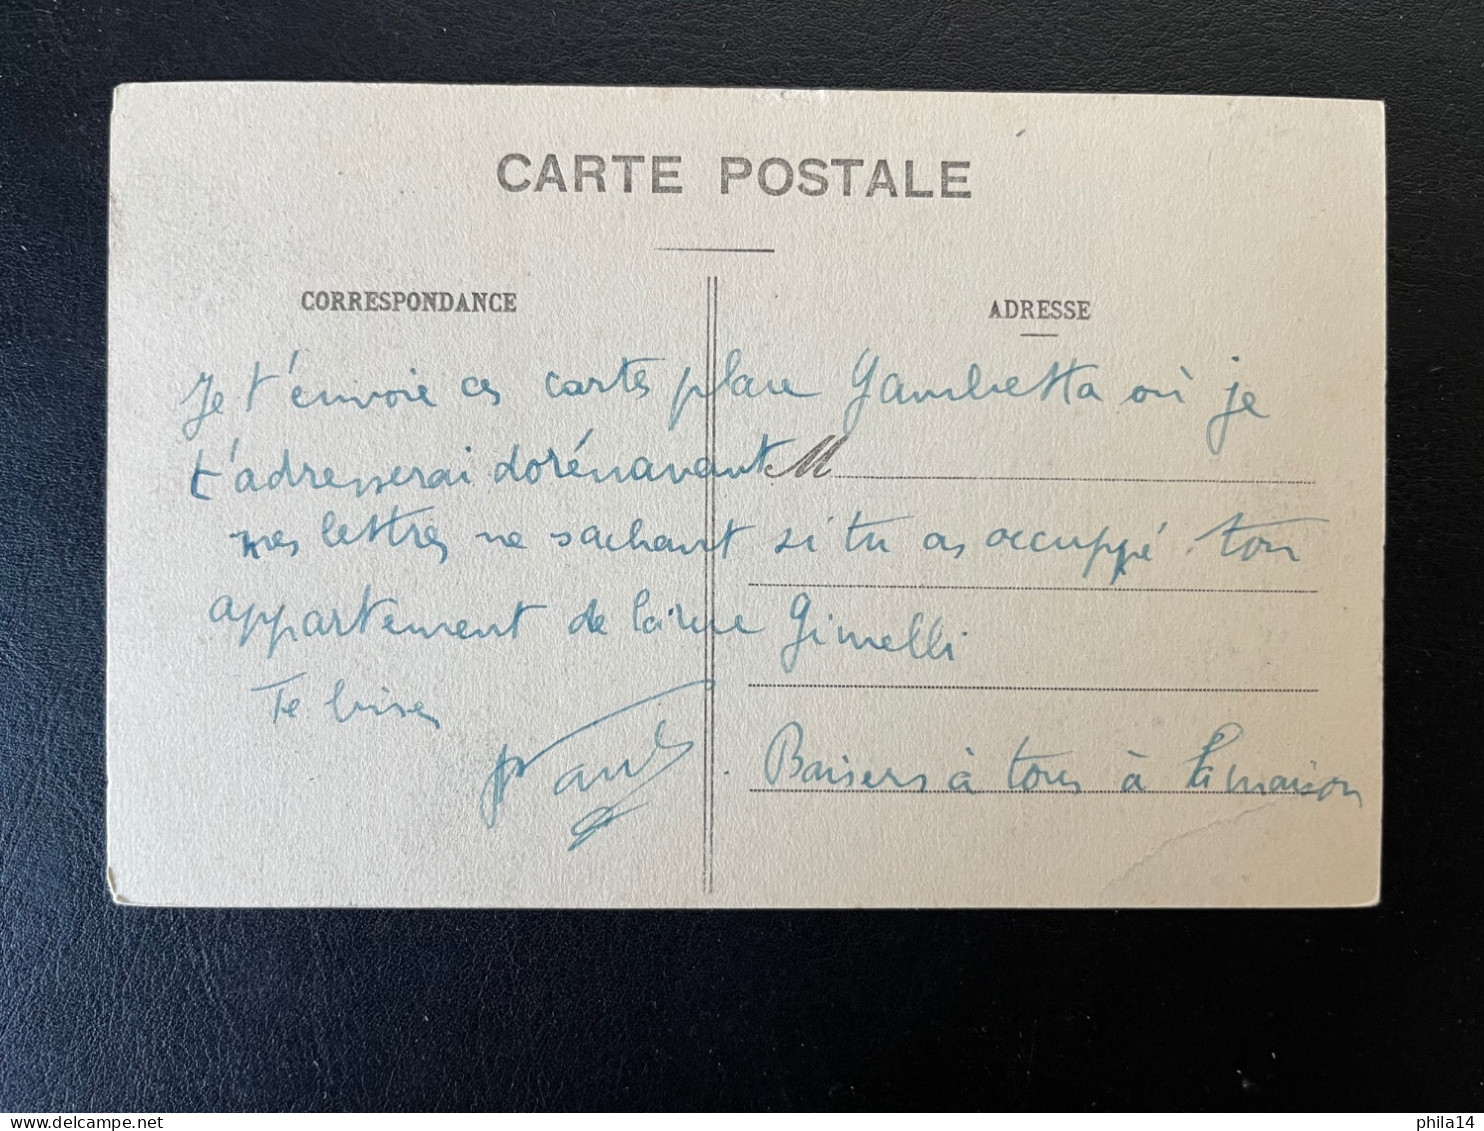 CARTE POSTALE
CORRESPONDANCE
ADRESSE
Je t'envoie ces cartes place Gambetta où je
t'adresserai dorénavant M
mes lettres ne sachant si tu as occuppé ton
appartement de la rue Gimelli
Te bises
Paul
Baisers à tous à la maison
phila14